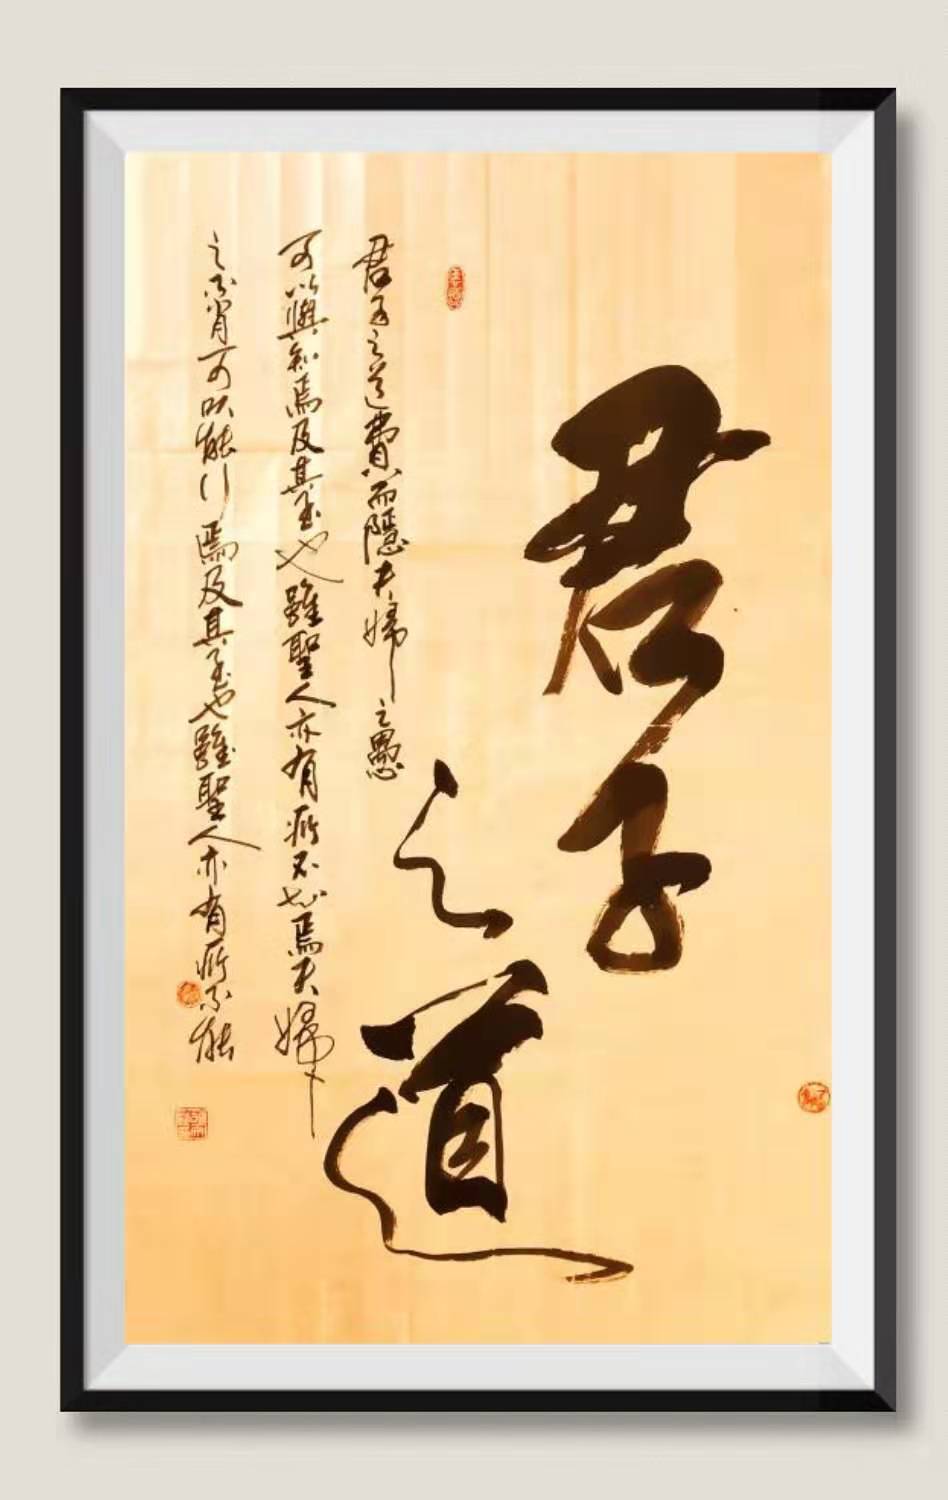 君子
之道
君子之道費而隱夫婦之愚
可以與知焉及其至也雖聖人亦有所不知焉夫婦
之不肖可以能行焉及其至也雖聖人亦有所不能